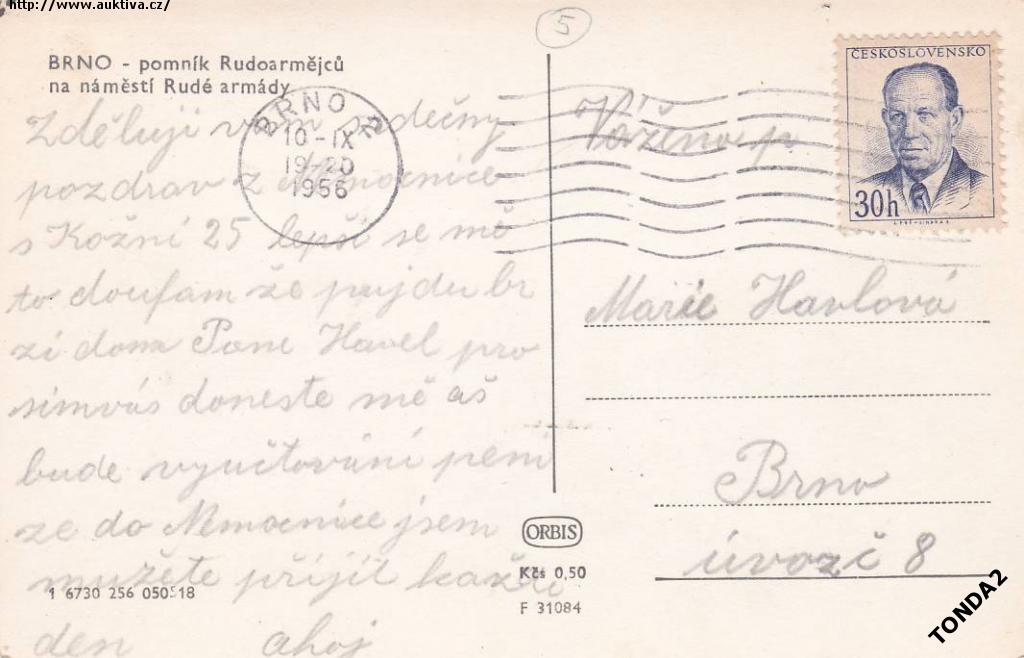 http://www.auktiva.cz/
5
BRNO - pomník Rudoarmějců
na náměstí Rudé armády
ČESKOSLOVENSKO
30h
BRNO 2
10-IX
19-20
1956
Zděluji vám srdečný
pozdrav z Nemocnice
s Kožní 25 lepší se mě
to doufam že pujdu br
zi doma Pane Havel pro
simvás doneste mě aš
bude vyučtování peni
ze do Nemocnice jsem
mužete přijit každi
den ahoj
Vážena p
Marie Havlová
Brno
úvoz č 8
ORBIS
Kčs 0,50
F 31084
1 6730 256 050518
TONDA2